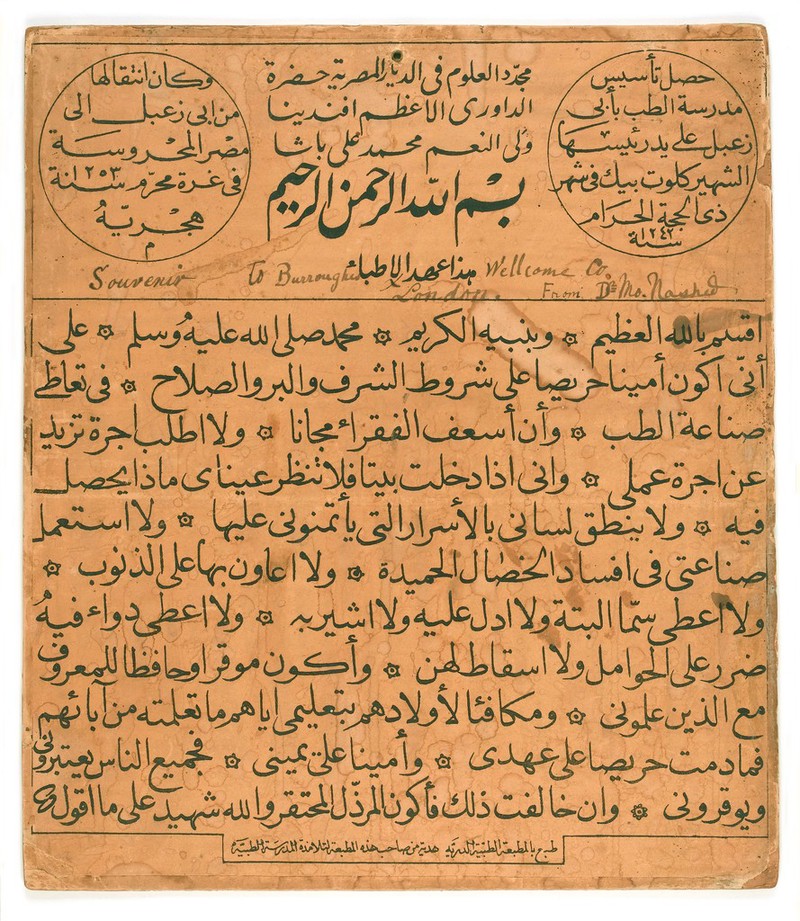 حصل تأسيس
مدرسة الطب بأبى
زعبل على يد رئيسها
الشهير كلوت بيك فى شهر
ذى الحجة الحرام
سنة ١٢٤٢
مجدّد العلوم فى الديار المصرية حضرة
الداورى الاعظم افندينا
ولى النعم محمد على باشا
وكان انتقالها
من ابى زعبل الى
مصر المحروسة
فى غرة محرّم سنة ١٢٥٣
هجريّه
م
بسم الله الرحمن الرحيم
هذا عهد الاطباء
Souvenir To Burroughs Wellcome Co.
London. From Dr Mo. Nashid
اقسم بالله العظيم ۞ وبنبيه الكريم ۞ محمد صلى الله عليه وسلم ۞ على
أنّى اكون أمينا حريصا على شروط الشرف والبر والصلاح ۞ فى تعاطى
صناعة الطب ۞ وأن أسعف الفقراء مجانا ۞ ولا اطلب اجرة تزيد
عن اجرة عملى ۞ وانى اذا دخلت بيتا فلا تنظر عيناى ماذا يحصل
فيه ۞ ولا ينطق لسانى بالأسرار التى يأتمنونى عليها ۞ ولا استعمل
صناعتى فى افساد الخصال الحميدة ۞ ولا اعاون بها على الذنوب ۞
ولا اعطى سمّا البتة ولا ادل عليه ولا اشير به ۞ ولا اعطى دواء فيه
ضرر على الحوامل ولا اسقاط لهن ۞ وأكون موقرا وحافظا للمعروف
مع الذين علمونى ۞ ومكافئا لأولادهم بتعليمى اياهم ما تعلمته من آبائهم
فما دمت حريصا على عهدى ۞ وأمينا على يمينى ۞ فجميع الناس يعتبرونى
ويوقرونى ۞ وان خالفت ذلك فأكون المرذّل المحتقر والله شهيد على ما اقول
طبع بالمطبعة الطبية الدرية هدية من صاحب هذه المطبعة لتلامذة المدرسة الطبية